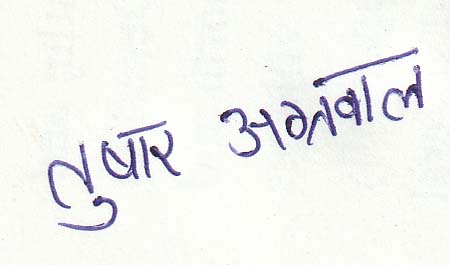 तुषार अग्रवाल